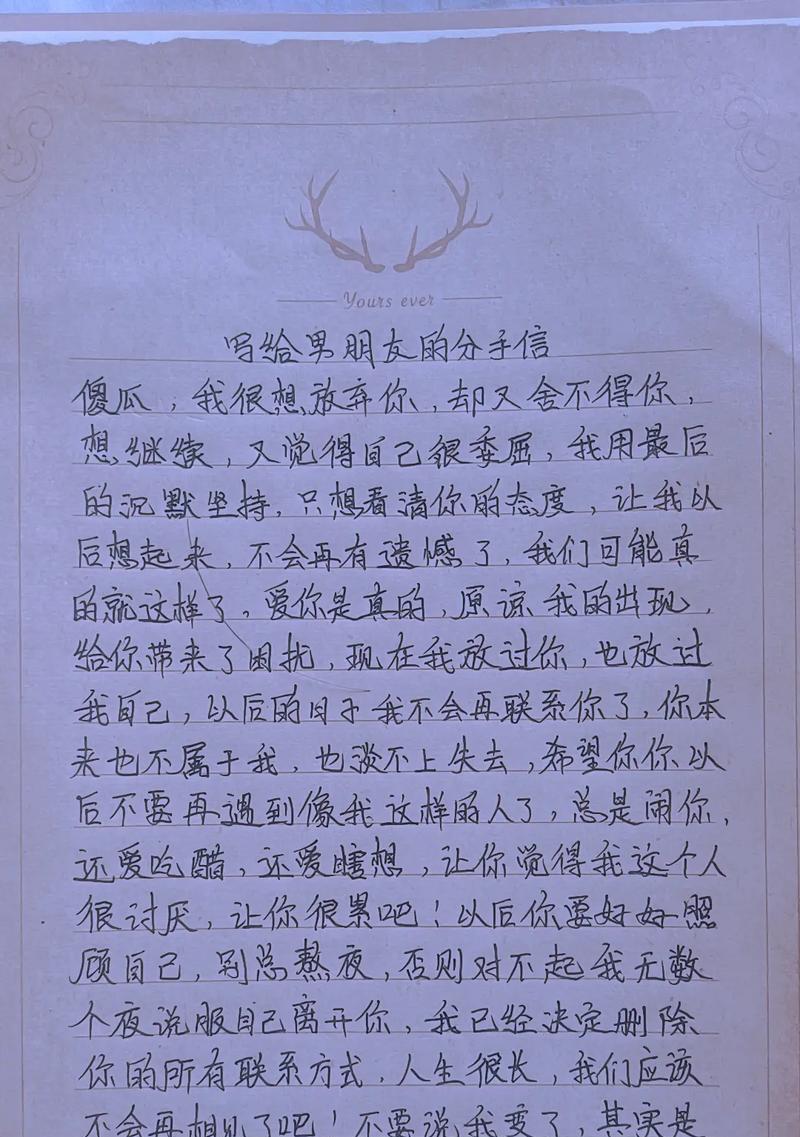 Yours ever
写给男朋友的分手信
傻瓜，我很想放弃你，却又舍不得你，
想继续，又觉得自己很委屈，我用最后
的沉默坚持，只想看清你的态度，让我以
后想起来，不会再有遗憾了，我们可能真
的就这样了，爱你是真的，原谅我的出现，
给你带来了困扰，现在我放过你，也放过
我自己，以后的日子我不会再联系你了，你本
来也不属于我，也谈不上失去，希望你你以
后不要再遇到像我这样的人了，总是闹你，
还爱吃醋，还爱瞎想，让你觉得我这个人
很讨厌，让你很累吧！以后你要好好照
顾自己，别总熬夜，否则对不起我无数
个夜说服自己离开你，我已经决定删除
你的所有联系方式，人生很长，我们应该
不会再相见了吧！不要说我变了，其实是